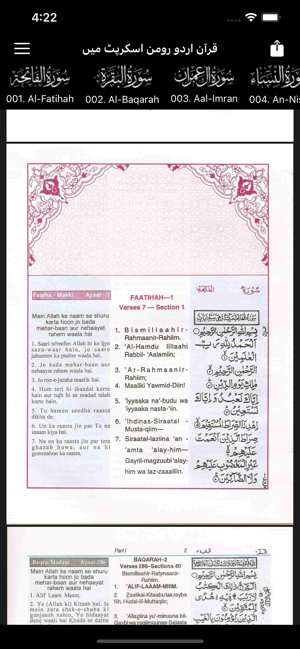 4:22
قرآن اردو رومن اسکرپٹ میں
سورة الفاتحة
سورة البقرة
سورة آل عمران
سورة النساء
001. Al-Fatihah
002. Al-Baqarah
003. Aal-Imran
004. An-Nis
Fateha - Makki Ayaat - 7
Main Allah ke naam se shuru
karta hoon jo bada
mehar-baan aur nehaayat
rahem waala hai
1. Saari tareefen Allah hi ke liye
saza-waar hain, jo saare
jahanon ka paalne waala hai.
2. Jo bada mehar-baan aur
nehaayat rahem waala hai.
3. Jo roz-e-jazaka maalik hai.
4. Hum teri hi ibaadat karte
hain aur tujh hi se madad talab
karte hain.
5. Tu hamen seedha raasta
dikha de.
6. Un ka raasta jin par Tu ne
inaam kiya hai.
7. Na un ka raasta jin par tera
ghazab huwa, aur na hi
gumraahon ka raasta.
FAATIHAH—1
Verses 7 — Section 1
1. Bismillaahir-
Rahmaanir-Rahiim.
2. 'Al-Hamdu lillaahi
Rabbil-'Aalamiin;
3. 'Ar-Rahmaanir-
Rahiim;
4. Maaliki Yawmid-Diin!
5. 'Iyyaaka na'-budu wa
'iyyaaka nasta-'iin.
6. 'Ihdinas-Siraatal -
Musta-qiim—
7. Siraatal-laziina 'an -
'amta 'alay-him—
Gayril-magzuubi 'alay-
him wa laz-zaaalliin.
سورة الفاتحة
بسم الله الرحمن الرحيم
الحمد لله رب
العلمين
الرحمن الرحيم
ملك يوم الدين
إياك نعبد وإياك
نستعين
اهدنا الصراط المستقيم
صراط الذين أنعمت
عليهم
غير المغضوب عليهم
ولا الضالين
Part I 2
Baqra-Madani Ayaat-286
Main Allah ke naam se shuru
karta hoon jo bada
mehar-baan aur nehaayat
rahem waala hai.
1. Alif Laam Meem.
2. Ye (Allah ki) Kitaab hai. Is
mein zara shak-o-shuba ki
gunjaaish nahin hai. Ye
BAQARAH–2
Verses 286–Sections 40
Bismillaahir-Rahmaanir-
Rahiim.
1. 'ALIF-LAAAM-MIIIM.
2. Zaalikal-Kitaabu laa rayba
fiih. Hudal-lil-Muttaqiin;
3. 'Allaziina yu'-minuuna bil-